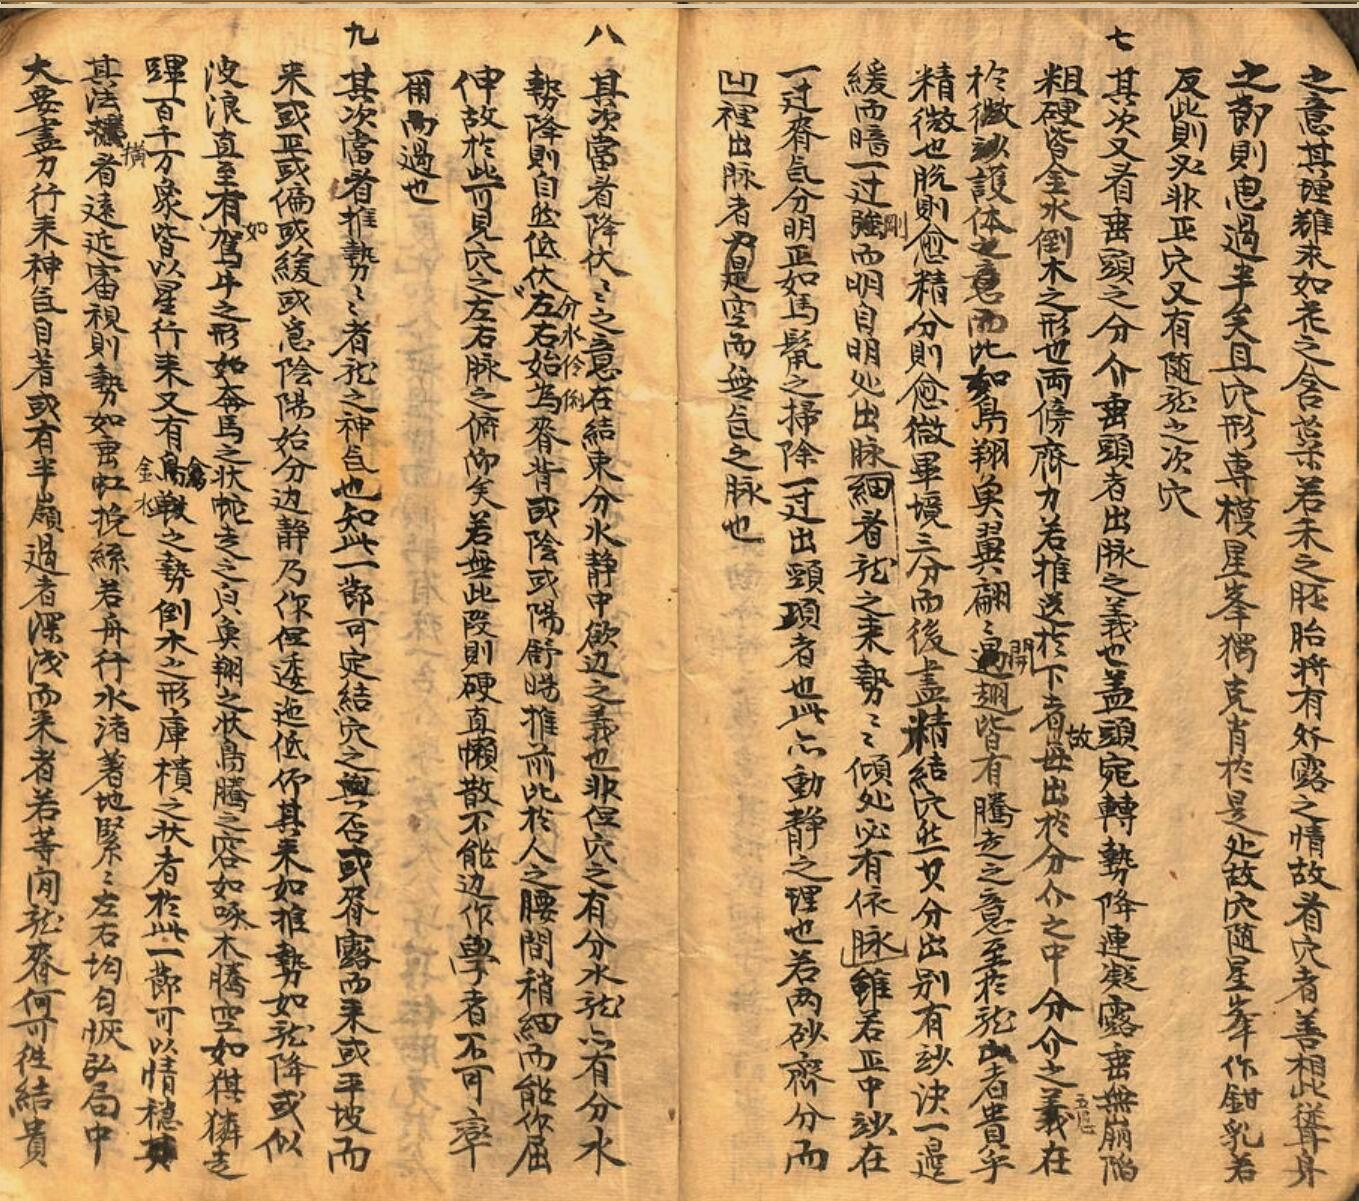 之意其理难求如花之含蕊若未之胚胎将有外露之情故看穴者善相此聳身
之節則思過半矣且穴形專模星峯獨克肖於是处故穴随星峯作鉗乳若
反此則必非正穴又有随龙之次穴
七
其次又看垂頭之分介垂頭者出脉之義也盖頭宛轉勢降連凝露垂無崩陷
粗硬皆金水倒木之形也两傍齊力若推送於下者毋出於分介之中分介之義在
故
於微妙護体之意而此如鳥翔魚翼翩〻過翅皆有騰走之意至於龙者貴乎
開
精微也脱則愈精分則愈微單境三分而後盡精結穴然其分出别有訣一邊
緩而暗一过強而明自明处出脉細者龙之来勢〻傾处必有依脉雖若正中在
剛
一过脊气分明正如馬鬣之掃除一过出頸項者也此亦動静之理也若两砂齊分而
凹裡出脉者是空而無气之脉也
八
其次當看降伏〻之意在結束分水静中欲边之義也非但穴之有分水龙亦有分水
勢降則自然低伏左右始為脊背或陰或陽舒暢推前此於人之腰間稍細而能作屈
分水伶俐
伸故於此可見穴之左右脉之俯仰矣若無此段則硬直懶散不能边作學者不可率
爾而過也
九
其次當看推勢〻者龙之神气也知此一節可定結穴之與否或脊露而来或平坡而
来或正或偏或緩或急陰陽始分边静乃作但逶迤低仰其来如推勢如龙降或似
波浪直至有駕牛之形如奔馬之状蛇走之魚翔之状鳥騰之容如啄木騰空如麒獜走
如
驆百千万象皆以星行来又有鳥之勢倒木之形庫樻之状者於此一節可以情穩其
禽
金水
其法看遠近宙視則勢如垂虹挽絲若舟行水渚著地緊〻左右均匀恢弘局中
橫
大要盡力行来神气自著或有半嶺過者深浅而来者若等闲龙脊何可徃結貴